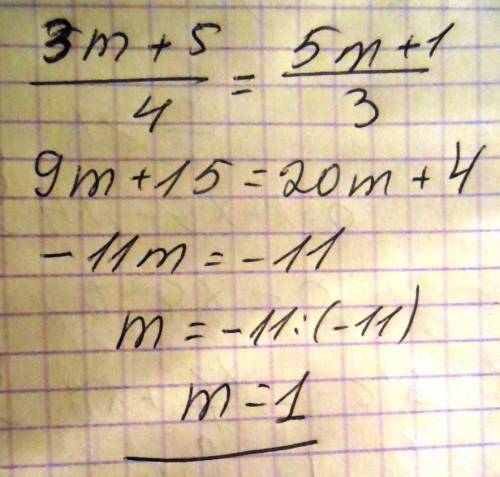 3m + 5 / 4 = 5m + 1 / 3
9m + 15 = 20m + 4
- 11m = - 11
m = - 11 : (- 11)
m = 1